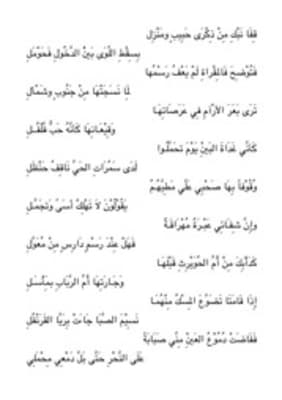 قِفَا نَبْكِ مِنْ ذِكْرَى حَبِيبٍ وَمَنْزِلِ
بِسِقْطِ اللِّوَى بَيْنَ الدَّخُولِ فَحَوْمَلِ
فَتُوْضِحَ فَالمِقْرَاةِ لَمْ يَعْفُ رَسْمُهَا
لِمَا نَسَجَتْهَا مِنْ جَنُوبٍ وَشَمْأَلِ
تَرَى بَعَرَ الأرْآمِ فِي عَرَصَاتِهَا
وَقِيْعَانِهَا كَأَنَّهُ حَبُّ فُلْفُلِ
كَأَنِّي غَدَاةَ البَيْنِ يَوْمَ تَحَمَّلُوا
لَدَى سَمُرَاتِ الحَيِّ نَاقِفُ حَنْظَلِ
وُقُوْفاً بِهَا صَحْبِي عَلَّي مَطِيَّهُمُ
يَقُوْلُوْنَ لاَ تَهْلِكْ أَسَىً وَتَجَمَّلِ
وَإِنَّ شِفَائِي عَبْرَةٌ مُهْرَاقَةٌ
فَهَلْ عِنْدَ رَسْمٍ دَارِسٍ مِنْ مُعَوَّلِ
كَدَأْبِكَ مِنْ أُمِّ الحُوَيْرِثِ قَبْلَهَا
وَجَارَتِهَا أُمِّ الرَّبَابِ بِمَأْسَلِ
إِذَا قَامَتَا تَضَوَّعَ المِسْكُ مِنْهُمَا
نَسِيْمَ الصَّبَا جَاءَتْ بِرَيَّا القَرَنْفُلِ
فَفَاضَتْ دُمُوْعُ العَيْنِ مِنِّي صَبَابَةً
عَلَى النَّحْرِ حَتَّى بَلَّ دَمْعِي مِحْمَلِي